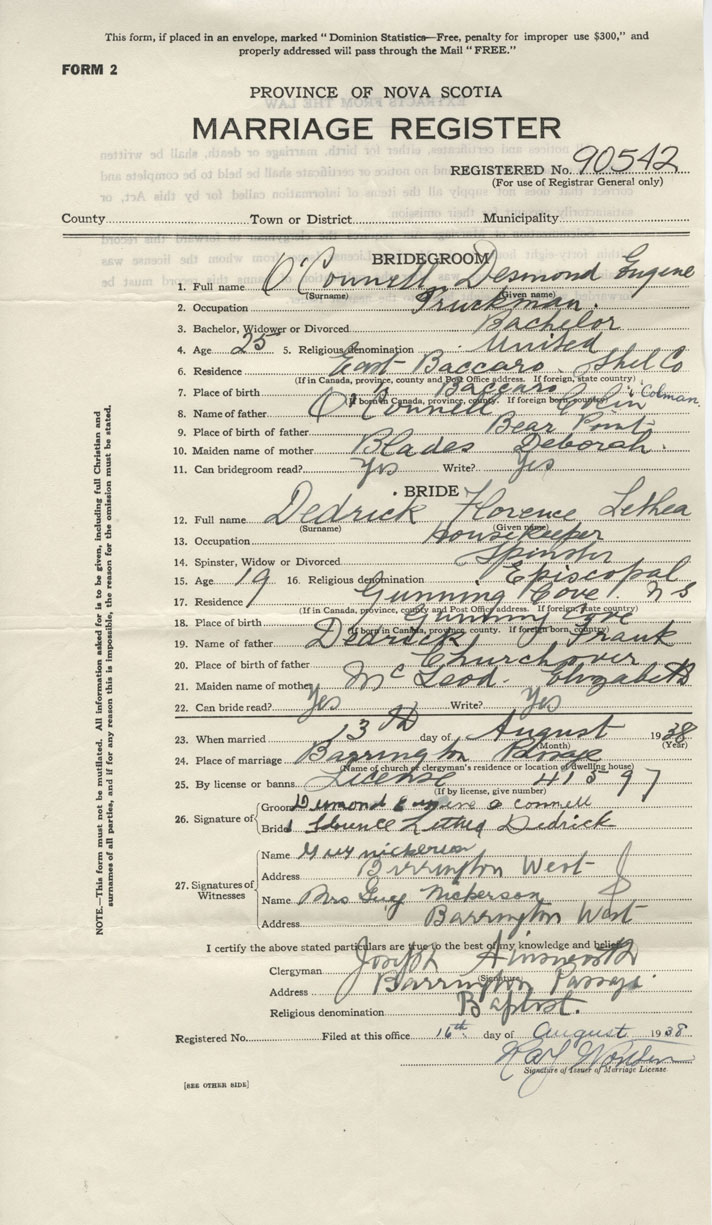 This form, if placed in an envelope, marked "Dominion Statistics—Free, penalty for improper use $300," and
properly addressed will pass through the Mail "FREE."
FORM 2
PROVINCE OF NOVA SCOTIA
MARRIAGE REGISTER
REGISTERED No. 90542
(For use of Registrar General only)
County Town or District Municipality
BRIDEGROOM
1. Full name O'Connell Desmond Eugene
(Surname) (Given name)
2. Occupation Truckman.
3. Bachelor, Widower or Divorced Bachelor
4. Age 25 5. Religious denomination United
6. Residence East Baccaro. Shel Co
(If in Canada, province, county and Post Office address. If foreign, state country)
7. Place of birth Baccaro
(If born in Canada, province, county. If foreign born, country)
8. Name of father O'Connell Colin Colman.
9. Place of birth of father Bear Point
10. Maiden name of mother Blades Deborah.
11. Can bridegroom read? Yes Write? Yes
BRIDE
12. Full name Dedrick Florence Lethea
(Surname) (Given name)
13. Occupation Housekeeper
14. Spinster, Widow or Divorced Spinster
15. Age 19 16. Religious denomination Episcopal
17. Residence Gunning Cove N S
(If in Canada, province, county and Post Office address. If foreign, state country)
18. Place of birth Gunning Cove
(If born in Canada, province, county. If foreign born, country)
19. Name of father Dedrick Frank
20. Place of birth of father Churchover
21. Maiden name of mother McLeod. Elizabeth
22. Can bride read? Yes Write? Yes
23. When married 13th day of August 1938
(Month) (Year)
24. Place of marriage Barrington Passage
(Name of church or clergyman's residence or location of dwelling house)
25. By license or banns License 41597
(If by license, give number)
26. Signature of Groom Desmond Eugene O Connell
Bride Florence Lethea Dedrick
27. Signatures of Witnesses
Name Guy Nickerson
Address Barrington West
Name Mrs Guy Nickerson
Address Barrington West
I certify the above stated particulars are true to the best of my knowledge and belief.
Clergyman Joseph Ainsworth
(Signature)
Address Barrington Passage
Religious denomination Baptist.
Registered No. Filed at this office 16th day of August 1938
Signature of Issuer of Marriage License
[SEE OTHER SIDE]
NOTE.—This form must not be mutilated. All information asked for is to be given, including full Christian and
surnames of all parties, and if for any reason this is impossible, the reason for the omission must be stated.